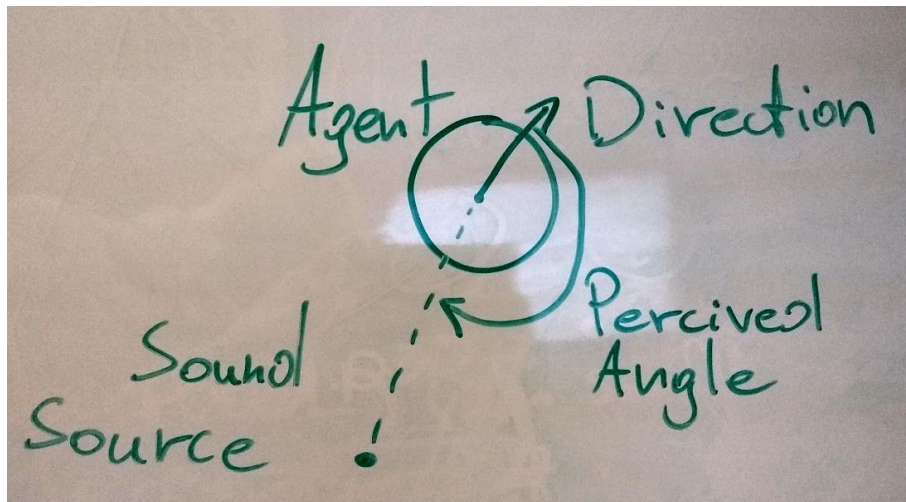 Agent
Direction
Percived
Angle
Sound
Source